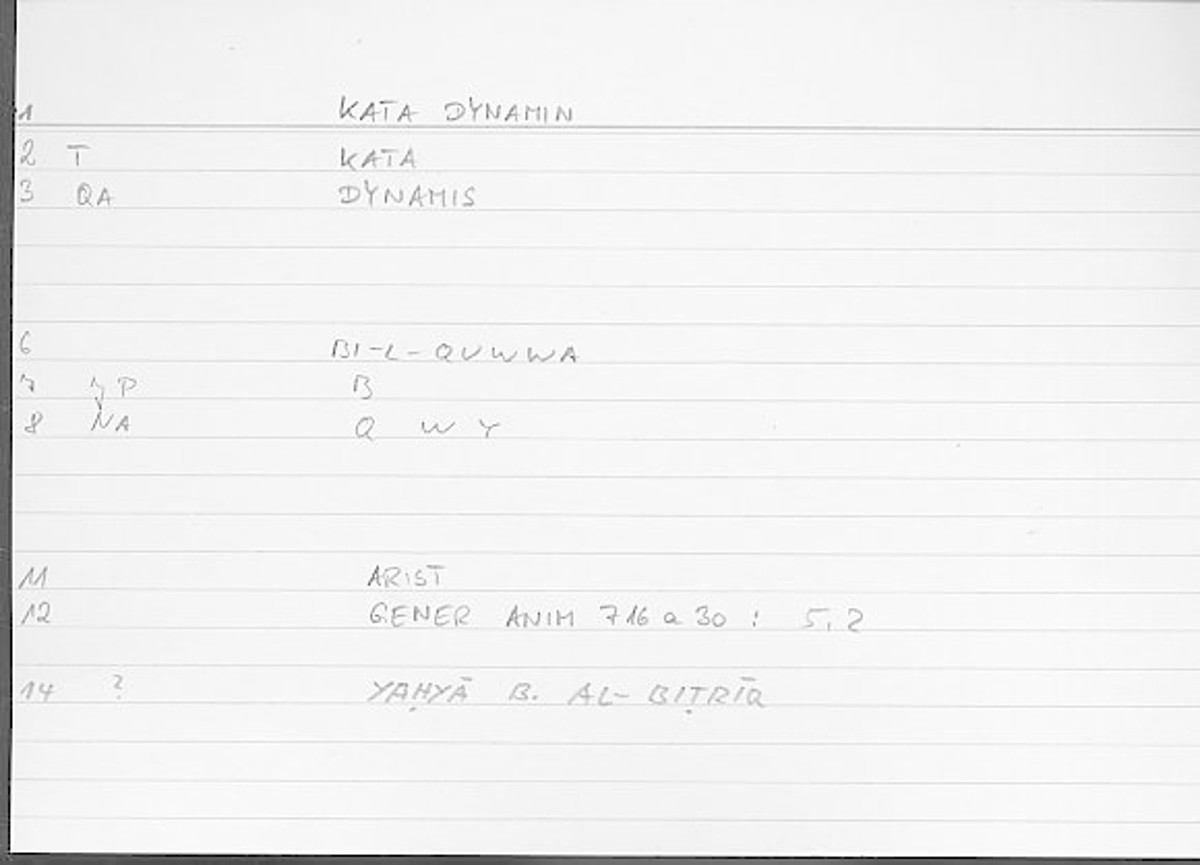 1 KATA DYNAMIN
2 T KATA
3 QA DYNAMIS
6 BI-L-QUWWA
7 P B
8 NA Q W Y
11 ARIST
12 GENER ANIM 716 a 30 : 5,2
14 ? YAḤYĀ B. AL-BIṬRĪQ